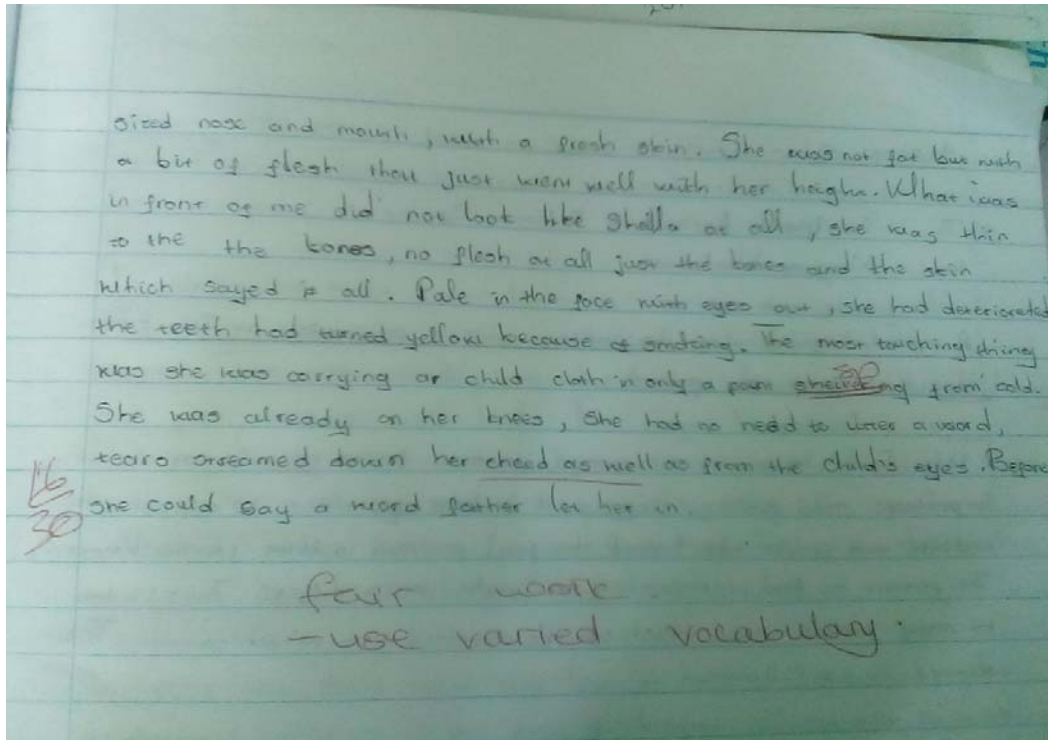 sized nose and mouth, with a fresh skin. She was not fat but with
a bit of flesh that just went well with her height. What was
in front of me did not look like Sheila at all, she was thin
to the the bones, no flesh at all just the bones and the skin
which sayed it all. Pale in the face with eyes out, she had deteriorated
the teeth had turned yellow because of smoking. The most touching thing
was she was carrying a child cloth in only a from cold.
She was already on her knees, she had no need to utter a word,
tears streamed down her cheed as well as from the child's eyes. Before
she could say a word father let her in.
16
30
fair work
- use varied vocabulary.